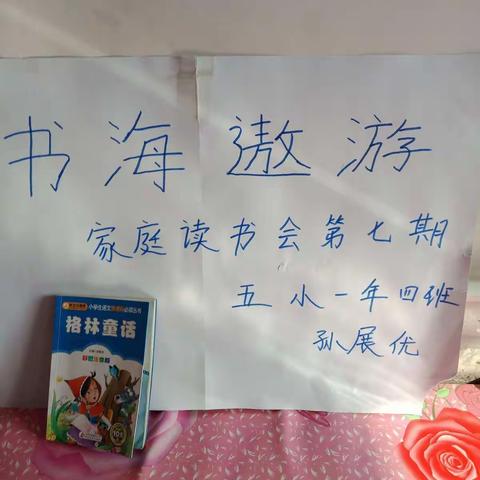 书海遨游
家庭读书会第七期
五小一年四班
孙展优
小学生语文新课标必读丛书
格林童话
彩图注音版